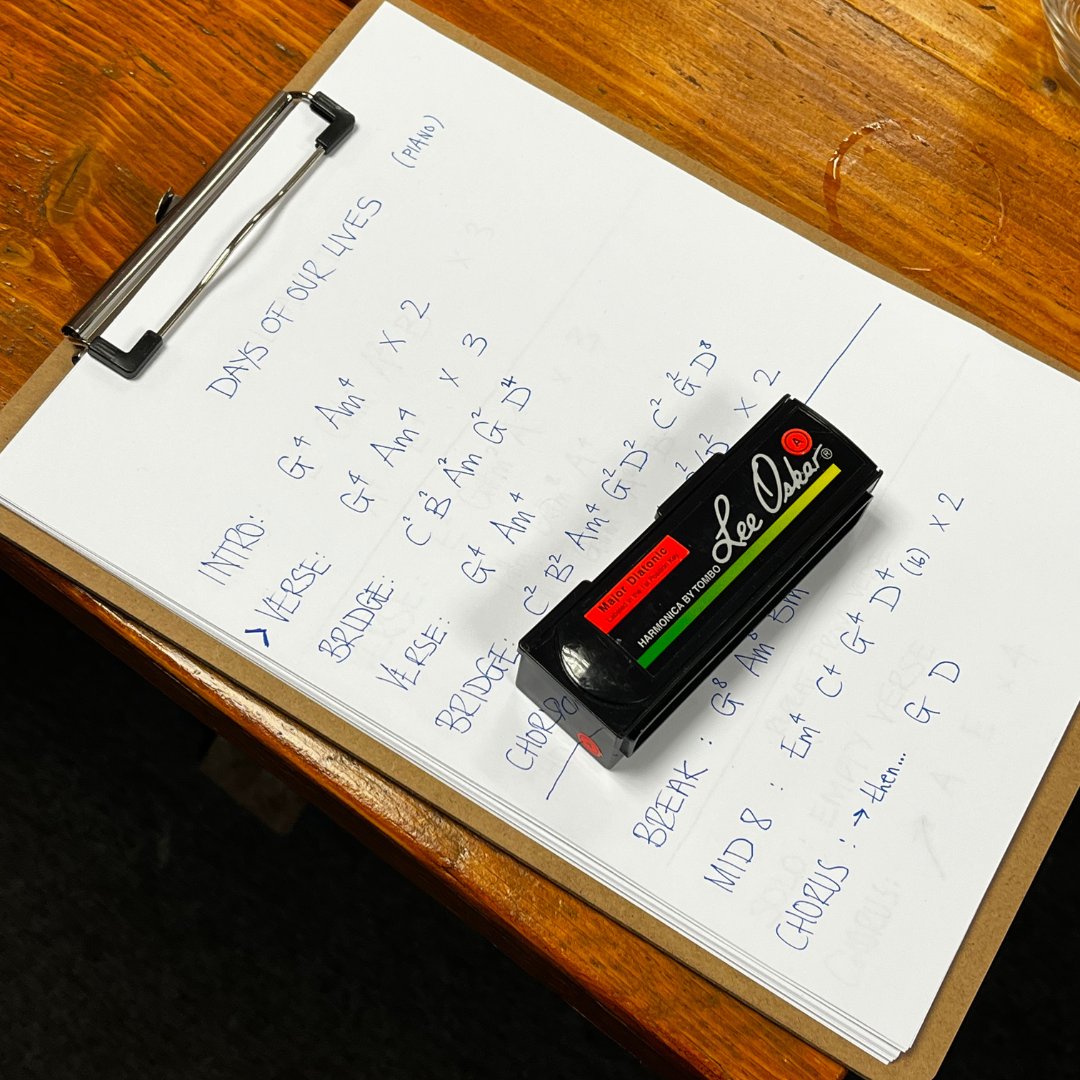 DAYS OF OUR LIVES (PIANO)
INTRO: G⁴ Am⁴ x 2
> VERSE: G⁴ Am⁴ x 3
BRIDGE: C² B² Am² G² D⁴
VERSE: G⁴ Am⁴
BRIDGE: C² B² Am⁴ G² D² C² G² D⁸
CHORUS x 2
BREAK : G⁸ Am⁸ Bm
MID 8 : Em⁴ C⁴ G⁴ D⁴ (16) x 2
CHORUS : → then... G D
A
Lee Oskar®
Major Diatonic
HARMONICA BY TOMBO